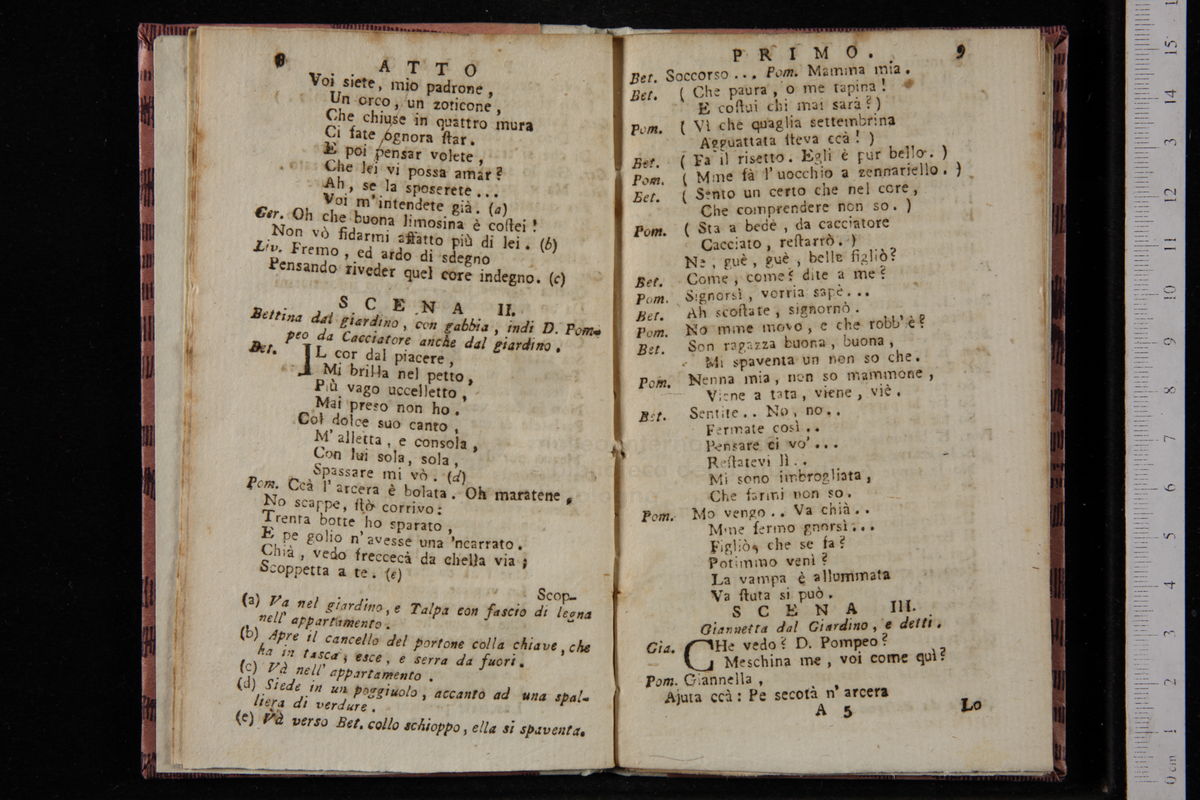 8
ATTO
Voi siete, mio padrone,
Un orco, un zoticone,
Che chiuse in quattro mura
Ci fate ognora ſtar.
E poi pensar volete,
Che lei vi possa amar?
Ah, se la sposerete...
Voi m'intendete già. (a)
Ger. Oh che buona limosina è coſtei!
Non vò fidarmi affatto più di lei. (b)
Liv. Fremo, ed ardo di sdegno
Pensando riveder quel core indegno. (c)
SCENA II.
Bettina dal giardino, con gabbia, indi D. Pom-
peo da Cacciatore anche dal giardino.
Bet. IL cor dal piacere,
Mi brilla nel petto,
Più vago uccelletto,
Mai preso non ho.
Col dolce suo canto,
M'alletta, e consola,
Con lui sola, sola,
Spassare mi vò. (d)
Pom. Ccà l'arcera è bolata. Oh maratene,
No scappe, ſtò corrivo:
Trenta botte ho sparato,
E pe golio n'avesse una 'ncarrato.
Chià, vedo freccecà da chella via;
Scoppetta a te. (e)
Scop-
(a) Va nel giardino, e Talpa con fascio di legna
nell' appartamento.
(b) Apre il cancello del portone colla chiave, che
ha in tasca, esce, e serra da fuori.
(c) Và nell' appartamento.
(d) Siede in un poggiuolo, accanto ad una spal-
liera di verdure.
(e) Và verso Bet. collo schioppo, ella si spaventa.
PRIMO.
9
Bet. Soccorso... Pom. Mamma mia.
Bet. (Che paura, o me tapina!
E coſtui chi mai sarà?)
Pom. (Vì che quaglia settembrina
Agguattata ſteva ccà!)
Bet. (Fa il risetto. Egli è pur bello.)
Pom. (Mme fà l'uocchio a zennariello.)
Bet. (Sento un certo che nel core,
Che comprendere non so.)
Pom. (Sta a bedè, da cacciatore
Cacciato, reſtarrò.)
Ne, guè, guè, belle figliò?
Bet. Come, come? dite a me?
Pom. Signorsì, vorria sapè...
Bet. Ah scoſtate, signornò.
Pom. No mme movo, e che robb'è?
Bet. Son ragazza buona, buona,
Mi spaventa un non so che.
Pom. Nenna mia, non so mammone,
Viene a tata, viene, viè.
Bet. Sentite.. No, no..
Fermate così..
Pensare ci vo'...
Reſtatevi lì..
Mi sono imbrogliata,
Che farmi non so.
Pom. Mo vengo.. Va chià..
Mme fermo gnorsì...
Figliò, che se fa?
Potimmo venì?
La vampa è allummata
Va ſtuta si può.
SCENA III.
Giannetta dal Giardino, e detti.
Gia. CHe vedo? D. Pompeo?
Meschina me, voi come quì?
Pom. Giannella,
Ajuta ccà: Pe secotà n'arcera
A 5
Lo